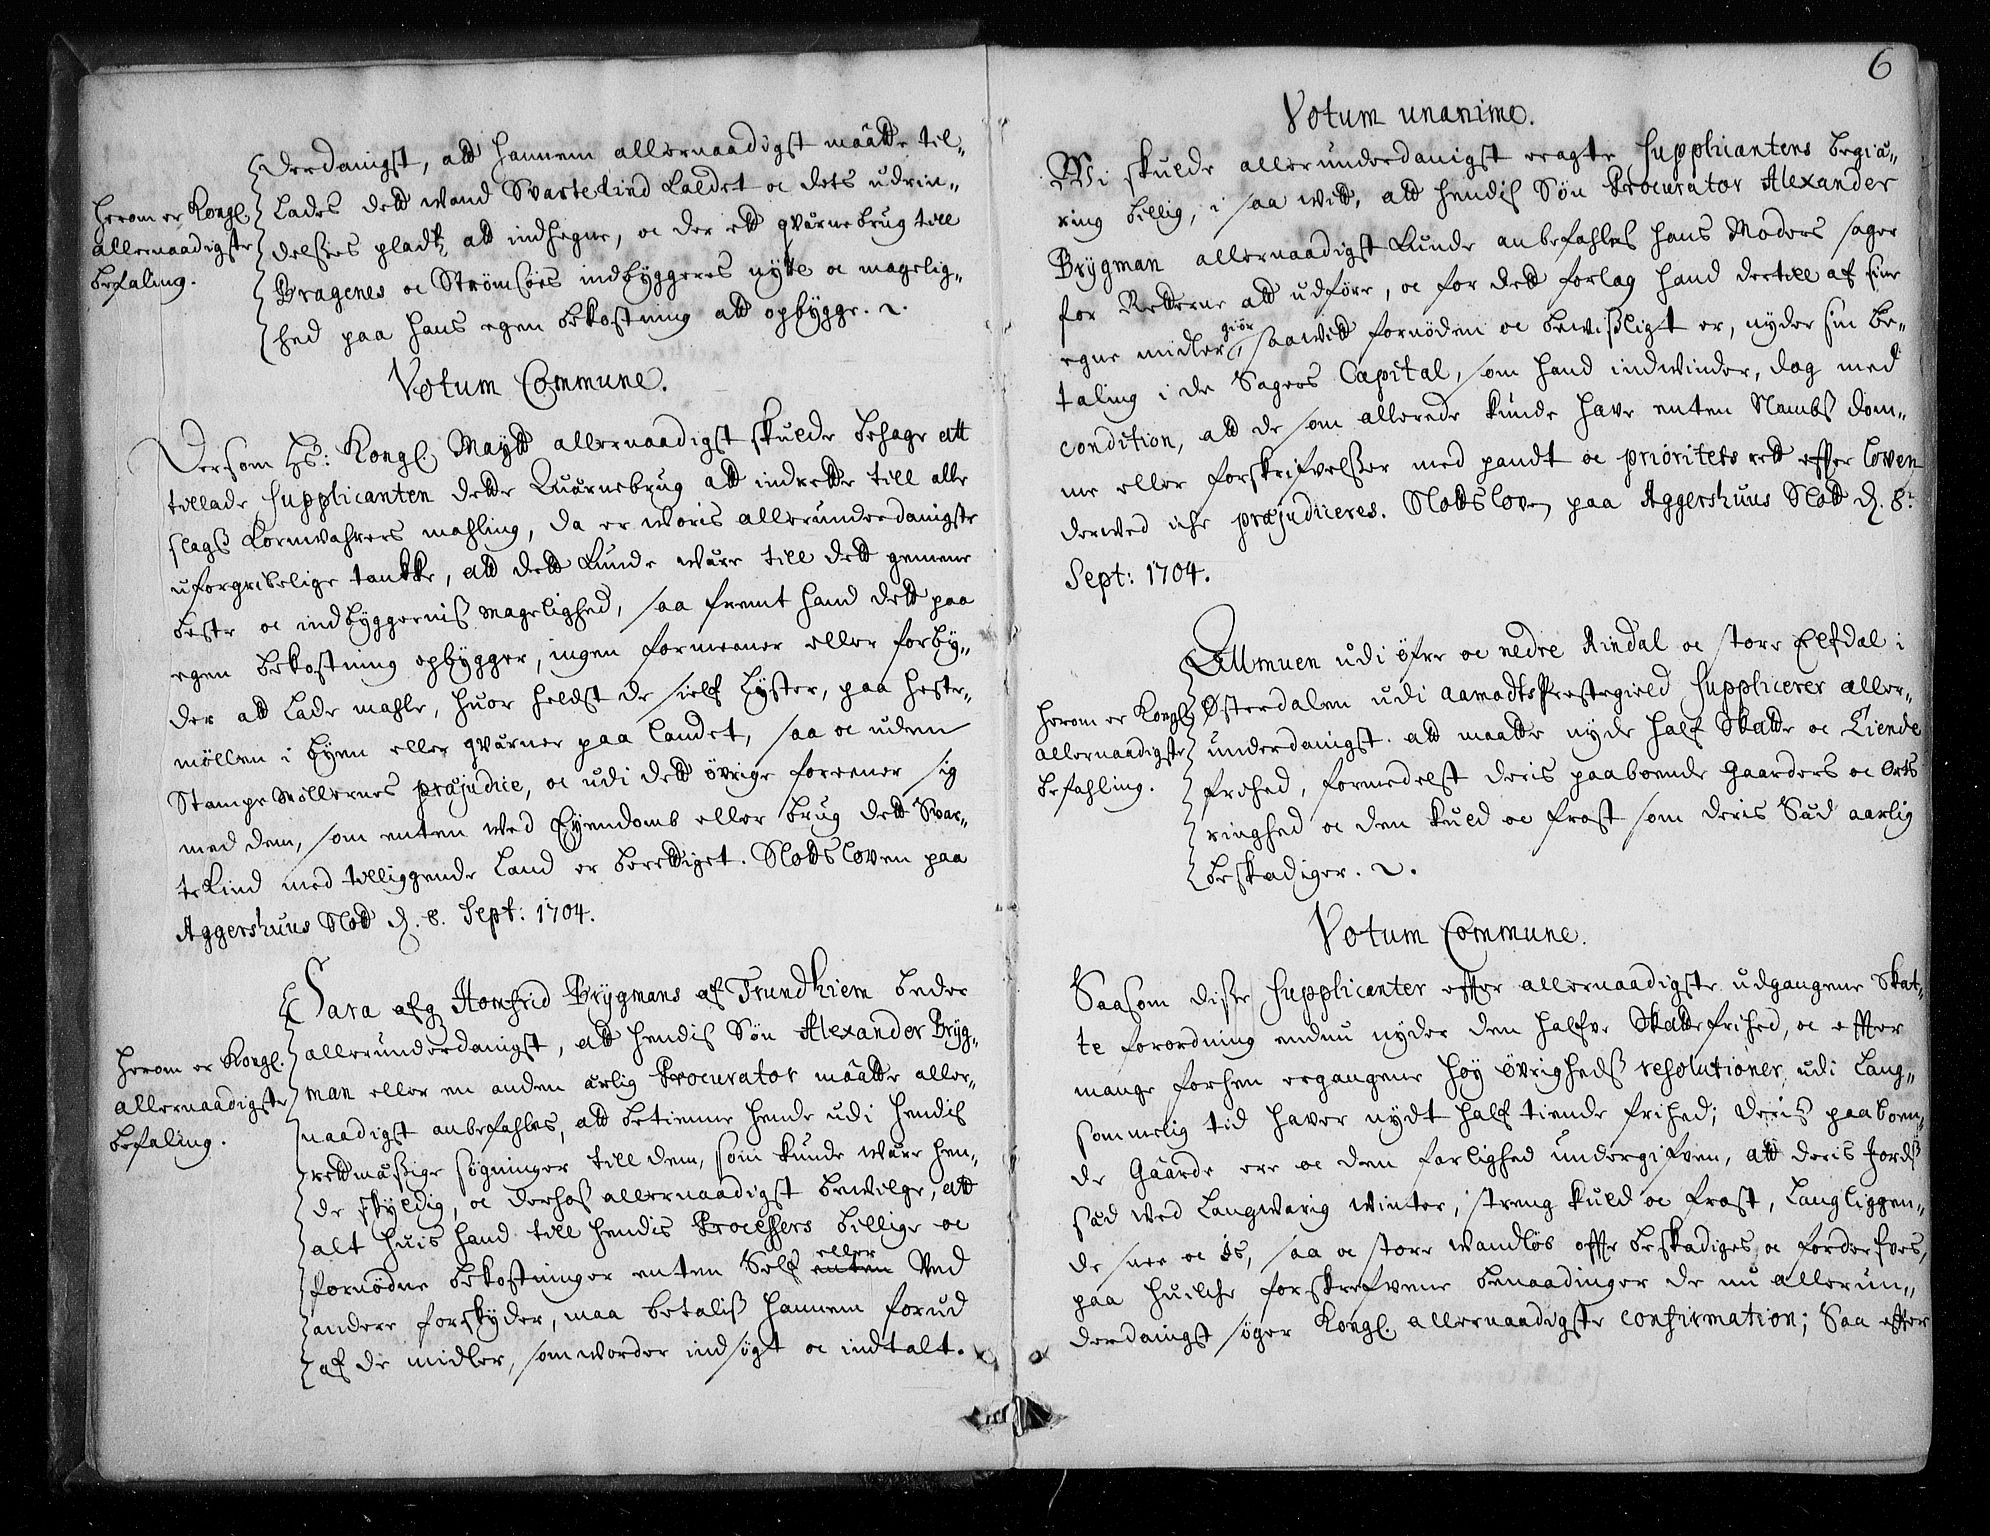 derdanigst, att hannem allernaadigst måatte til-
lades dett wand Svartekind kaldet oc dets udrin-
delsses pladtz att indhegne, oc der ett qvärnebrug till
Bragenes oc Strömsöes indbÿggeres nÿtte oc magelig-
hed paa hans egen bekostning att opbÿgge. 2.
herom er Kongl.
allernaadigste
befaling.
Votum Commune.
Dersom Hs: Kongl. Maÿtt allernaadigst skulde behage att
tillade Supplicanten dette Quärnebrug att indrette till alle
slags kornwahres mahling, da er woris allerunderdanigste
uforgribelige tankke, att dett kunde wäre till dett gemene
beste oc indbÿggernis magelighed, saa fremt hand dett paa
egen bekostning opbÿgger, ingen formeener eller forbÿ-
der att lade mahle, huor heldst de sielf lÿster, paa heste-
möllen i bÿen eller qvärner paa landet, saa oc uden
Stampemöllernes præjudice, oc udi dett övrige foreener sig
med dem, som enten wed Eÿendomb eller brug dett Svar-
tekind med tilliggende land er berettiget. Slottsloven paa
Aggershuus Slott d. 8. Sept: 1704.
Sara afg Homfrid Brÿgmans af Trundhiem beder
allerunderdanigst, att hendis Sön Alexander Brÿg-
man eller en anden ärlig Procurator måatte aller-
naadigst anbefahles, att betienne hende udi hendis
rettmässige sögninger till dem, som kunde wäre hen-
de skÿldig, oc derhos allernaadigst bewilge, att
alt huis hand till hendis Processers billige oc
fornödne bekostninger enten Self enten eller Ved
andere forskÿder, maa betalis hannem forud
af de midler, som worder indsögt oc indtalt.
herom er Kongl.
allernaadigste
befaling.
6
Votum unanime.
Wi skulde allerunderdanigst eragte Supplicantens begiä-
ring billig, i saa witt, att hendis Sön Procurator Alexander
Brÿgman allernaadigst kunde anbefahles hans Moders sager
for Retterne att udföre, oc for dett forlag hand dertill af sine
egne midler giör, saawitt fornöden oc bewisligt er, nyder sin be-
taling i de Sagers Capital, som hand indwinder, dog med
condition, att de som allerede kunde have enten Nambs dom-
me eller forskrifvelsser med pandt oc prioritets rett efter loven
derved iche præjudiceres. Slottsloven paa Aggershuus Slott d. 8.
Sept: 1704.
Allmuen udi öfre oc nedre Rindal oc store Elfdal i
Østerdalen udi Aamodts Prestegield Supplicerer aller-
underdanigst. att maatte nyde half Skatte oc Tiende
frihed, formedelst deris paaboende Gaarders oc Orts
ringhed oc den kuld oc frost som deris Säd aarlig
beskadiger. 2.
herom er Kongl
allernaadigste
befahling.
Votum Commune.
Saasom disse Supplicanter efter allernaadigste udgangene Skat-
te forordning endnu nyder den halfve Skattefrihed, oc efter
mange forhen ergangene höy övrigheds resolutioner udi lang-
sommelig tid haver nydt half tiende frihed; deris paaboen-
de Gäarde ere oc den farlighed undergifven, att deris Jords
säd ved langwarig winter, streng kuld oc frost, langliggen-
de snee oc is, saa oc store wandlös offte beskadiges oc forderfves,
paa huilche forskrefvene benaadinger de nu allerun-
derdanigst söger Kongl. allernaadigste confirmation; Saa efter